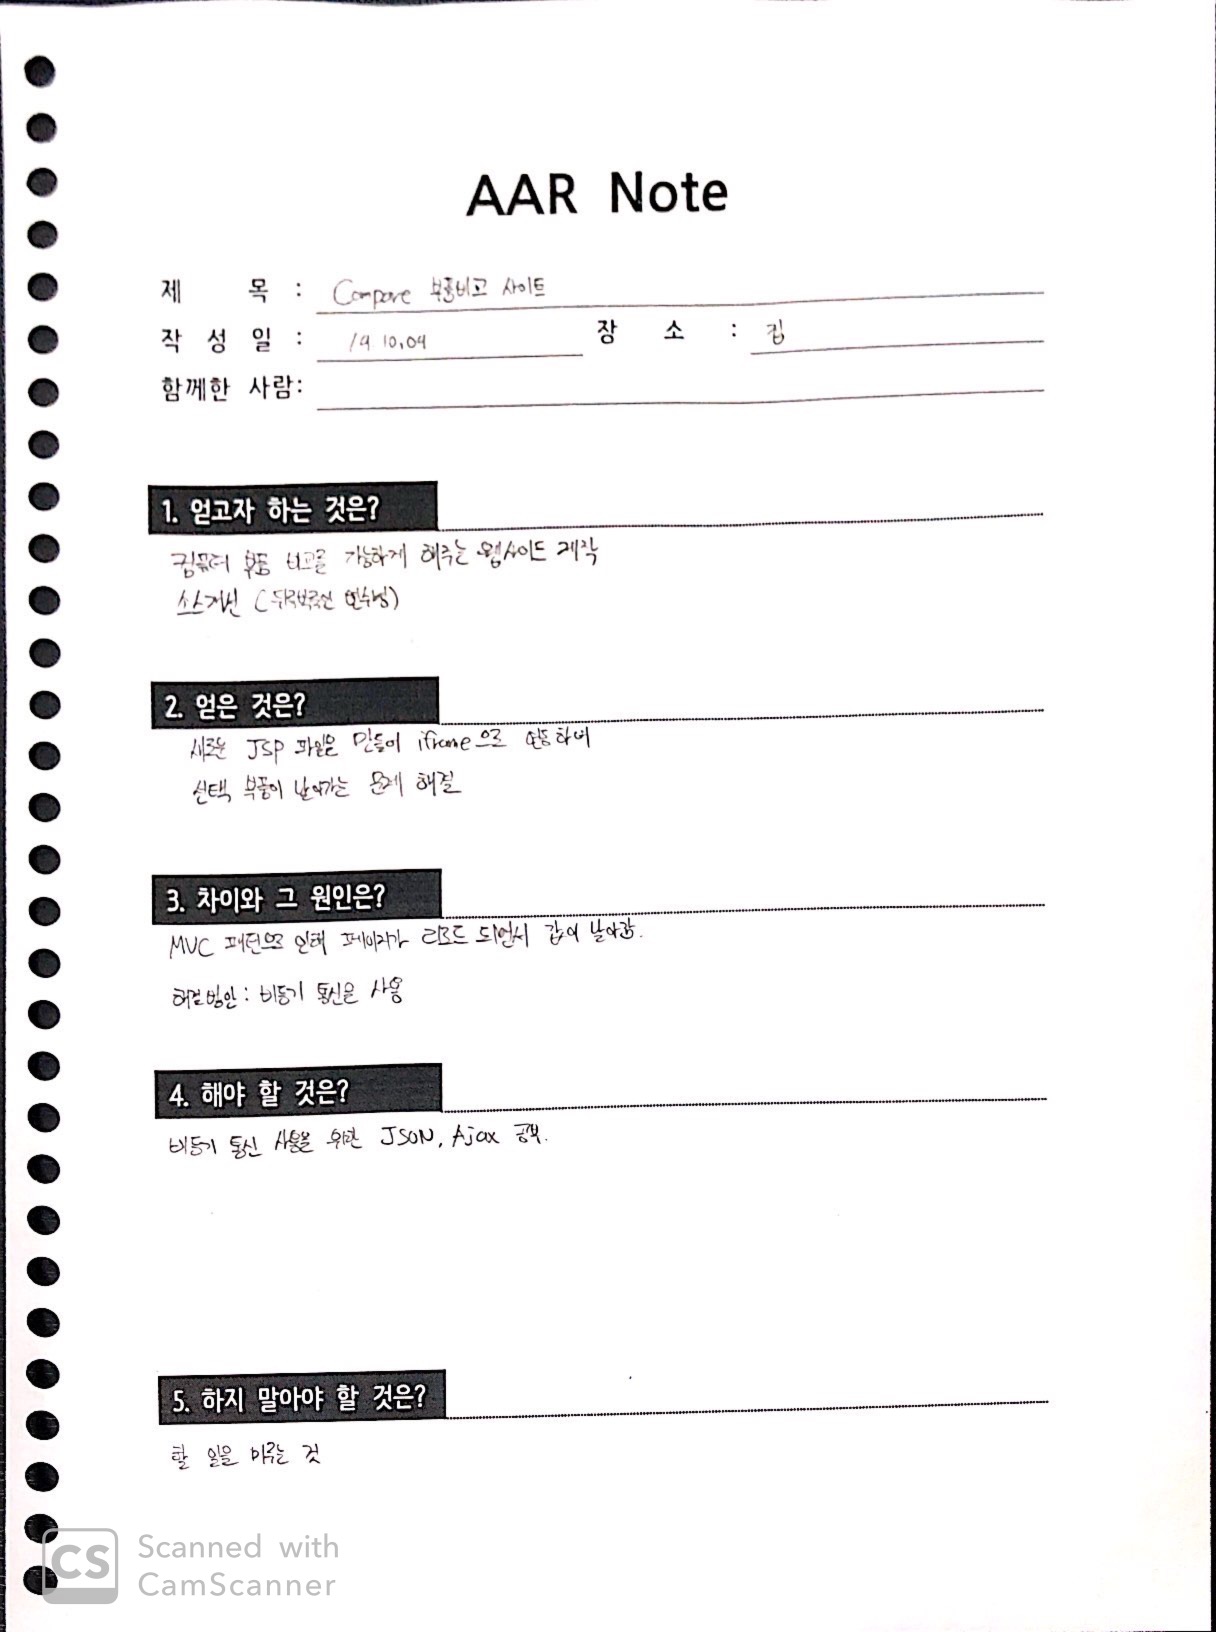 AAR Note
제 목 : Compare 부품비교 사이트
작 성 일 : 19.10.09 장 소 : 집
함께한 사람:
1. 얻고자 하는 것은?
컴퓨터 부품 비교를 가능하게 해주는 웹사이트 제작
소스개선
2. 얻은 것은?
새로운 JSP 파일을 만들어 iframe으로 연동하여
선택 부품이 날아가는 문제 해결
3. 차이와 그 원인은?
MVC 패턴으로 인해 페이지가 리로드 되면서 값이 날아감.
해결방안 : 비동기 통신을 사용
4. 해야 할 것은?
비동기 통신 사용을 위한 JSON, Ajax 공부.
5. 하지 말아야 할 것은?
할 일을 미루는 것
CS Scanned with
CamScanner